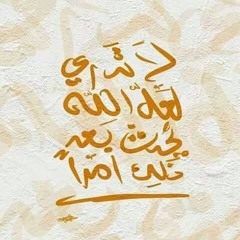 لا تدري
لعل الله
يحدث بعد
ذلك أمراً